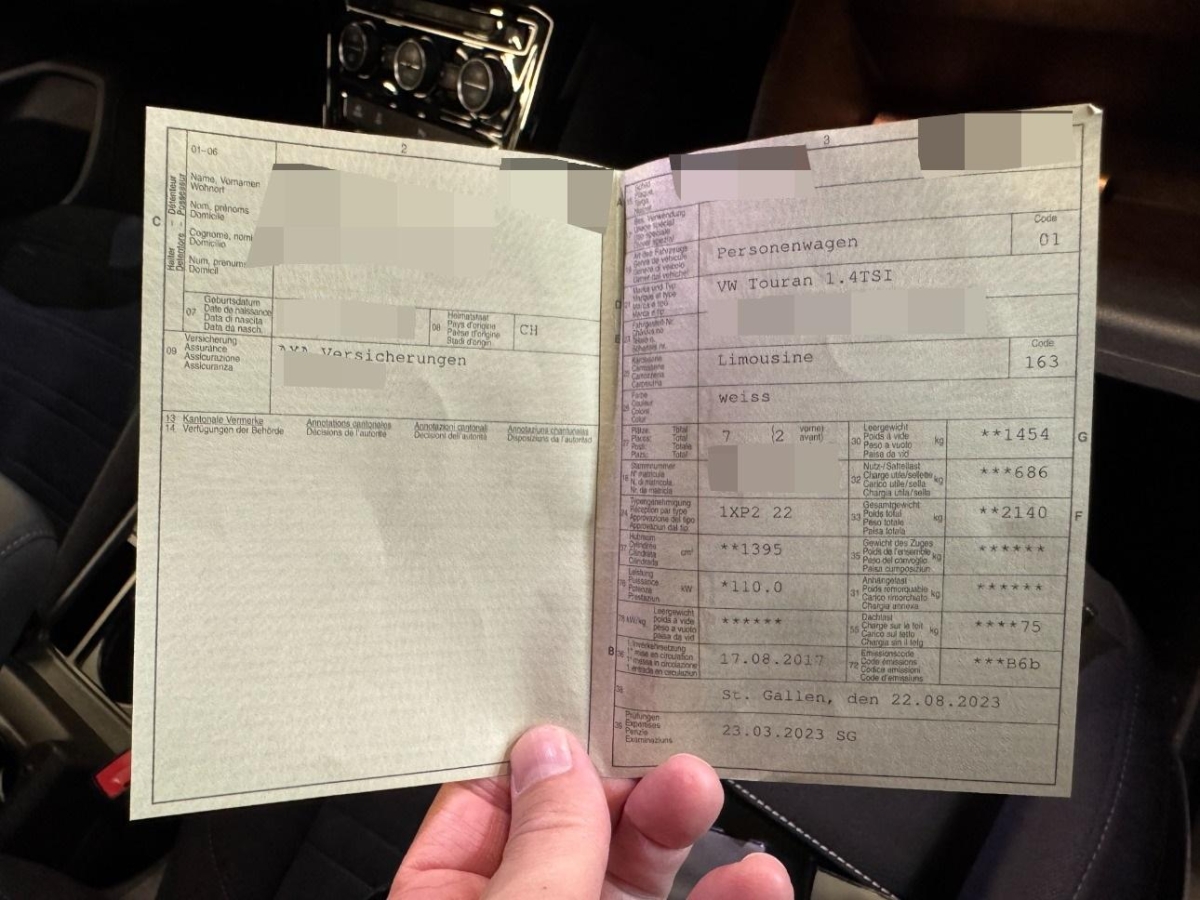 2
01-06
C
Halter - Détenteur
Detentore - Possessur
Name, Vornamen
Wohnort
Nom, prénoms
Domicile
Cognome, nomi
Domicilio
Num, prenums
Domicil
07
Geburtsdatum
Date de naissance
Data di nascita
Data da nasch.
08
Heimatstaat
Pays d'origine
Paese d'origine
Stadi d'origin
CH
09
Versicherung
Assurance
Assicurazione
Assicuranza
Versicherungen
13 Kantonale Vermerke
14 Verfügungen der Behörde
Annotations cantonales
Décisions de l'autorité
Annotazioni cantonali
Decisioni dell'autorità
Annotaziuns chantunalas
Disposiziuns da l'autoritad
3
A
Personenwagen
Code
01
D
VW Touran 1.4TSI
E
Limousine
Code
163
Farbe
Couleur
Colore
Colur
weiss
Plätze Total
Places Total
Posti Totale
Plazs Total
7 (2 vorne
avant)
30
Leergewicht
Poids à vide
Peso a vuoto
Paisa da vid
kg
**1454
G
18
Stammnummer
N° matricule
N. di matricola
Nr. da matricla
32
Nutz-/Sattellast
Charge utile/sellette
Carico utile/sella
Chargia utila/sella
kg
***686
24
Typengenehmigung
Réception par type
Approvazione del tipo
Approvaziun dal tip
1XP2 22
33
Gesamtgewicht
Poids total
Peso totale
Paisa totala
kg
**2140
F
37
Hubraum
Cylindrée
Cilindrata
cm³
**1395
35
Gewicht des Zuges
Poids de l'ensemble
Peso del convoglio
Paisa cumposiziun
kg
******
76
Leistung
Puissance
Potenza
Prestaziun
kW
*110.0
31
Anhängelast
Poids remorquable
Carico rimorchiato
Chargia annexa
kg
******
78 kW/kg
Leergewicht
poids à vide
peso a vuoto
paisa da vid
******
55
Dachlast
Charge sur le toit
Carico sul tetto
Chargia sin il tetg
kg
****75
B
36
1. Inverkehrsetzung
1re mise en circulation
1a messa in circolazione
1. entrada en circulaziun
17.08.2017
72
Emissionscode
Code émissions
Codice emissioni
Code d'emissiuns
***B6b
38
St. Gallen, den 22.08.2023
39
Prüfungen
Expertises
Perizie
Examinaziuns
23.03.2023 SG